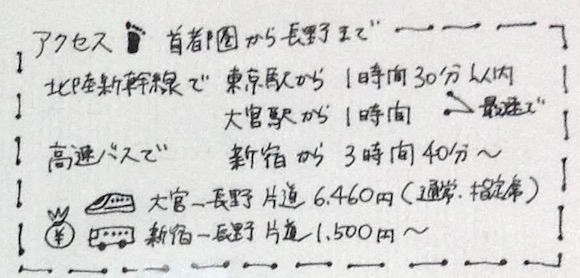 アクセス 首都圏から長野まで
北陸新幹線で 東京駅から 1時間30分以内
大宮駅から 1時間 最速で
高速バスで 新宿から 3時間40分～
大宮―長野 片道 6,460円(通常・指定席)
¥ 新宿―長野 片道 1,500円～